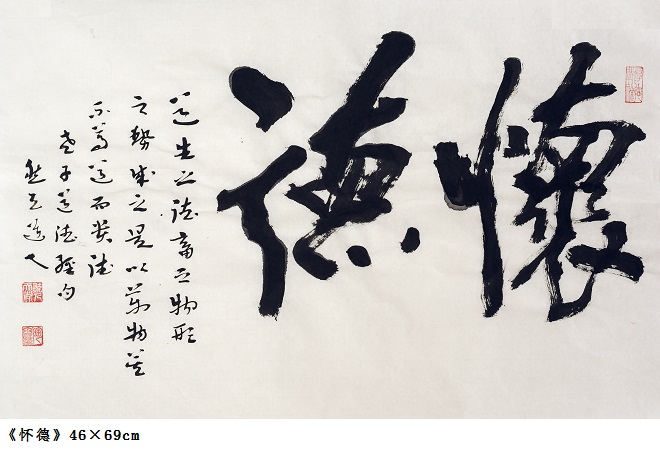 懷德
道生之德畜之物形
之勢成之是以萬物莫
不尊道而貴德
老子道德經句
道人
《怀德》46×69cm